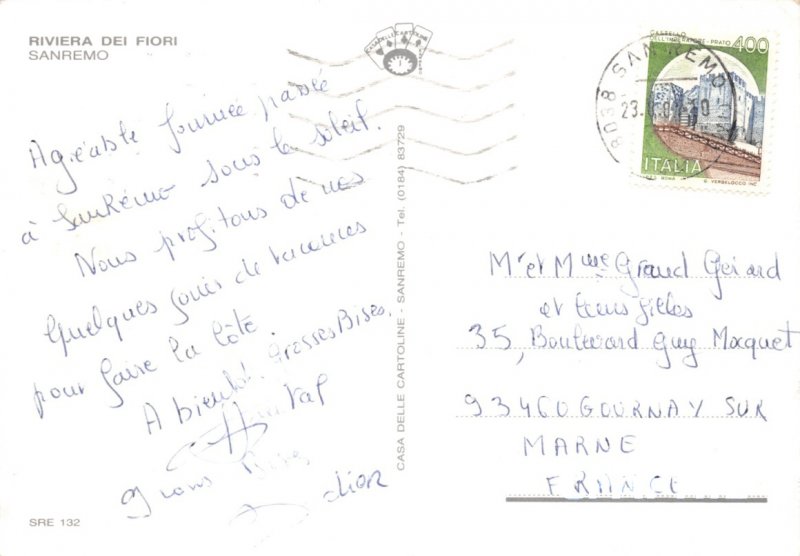 RIVIERA DEI FIORI
SANREMO
Agréable journée passée
à SanRémo sous le soleil.
Nous profitons de nos
quelques jours de vacances
pour faire la côte.
A bientôt. Grosses Bises.
Chantal
gros Bises
SRE 132
CASA DELLE CARTOLINE - SANREMO - Tel. (0184) 83729
CASTELLO
DELL'IMPERATORE - PRATO
400
ITALIA
SAN REMO
23.
Mr et Mme Grand Gérard
et leurs filles
35, Boulevard Guy Mocquet
93460 GOURNAY SUR
MARNE
FRANCE